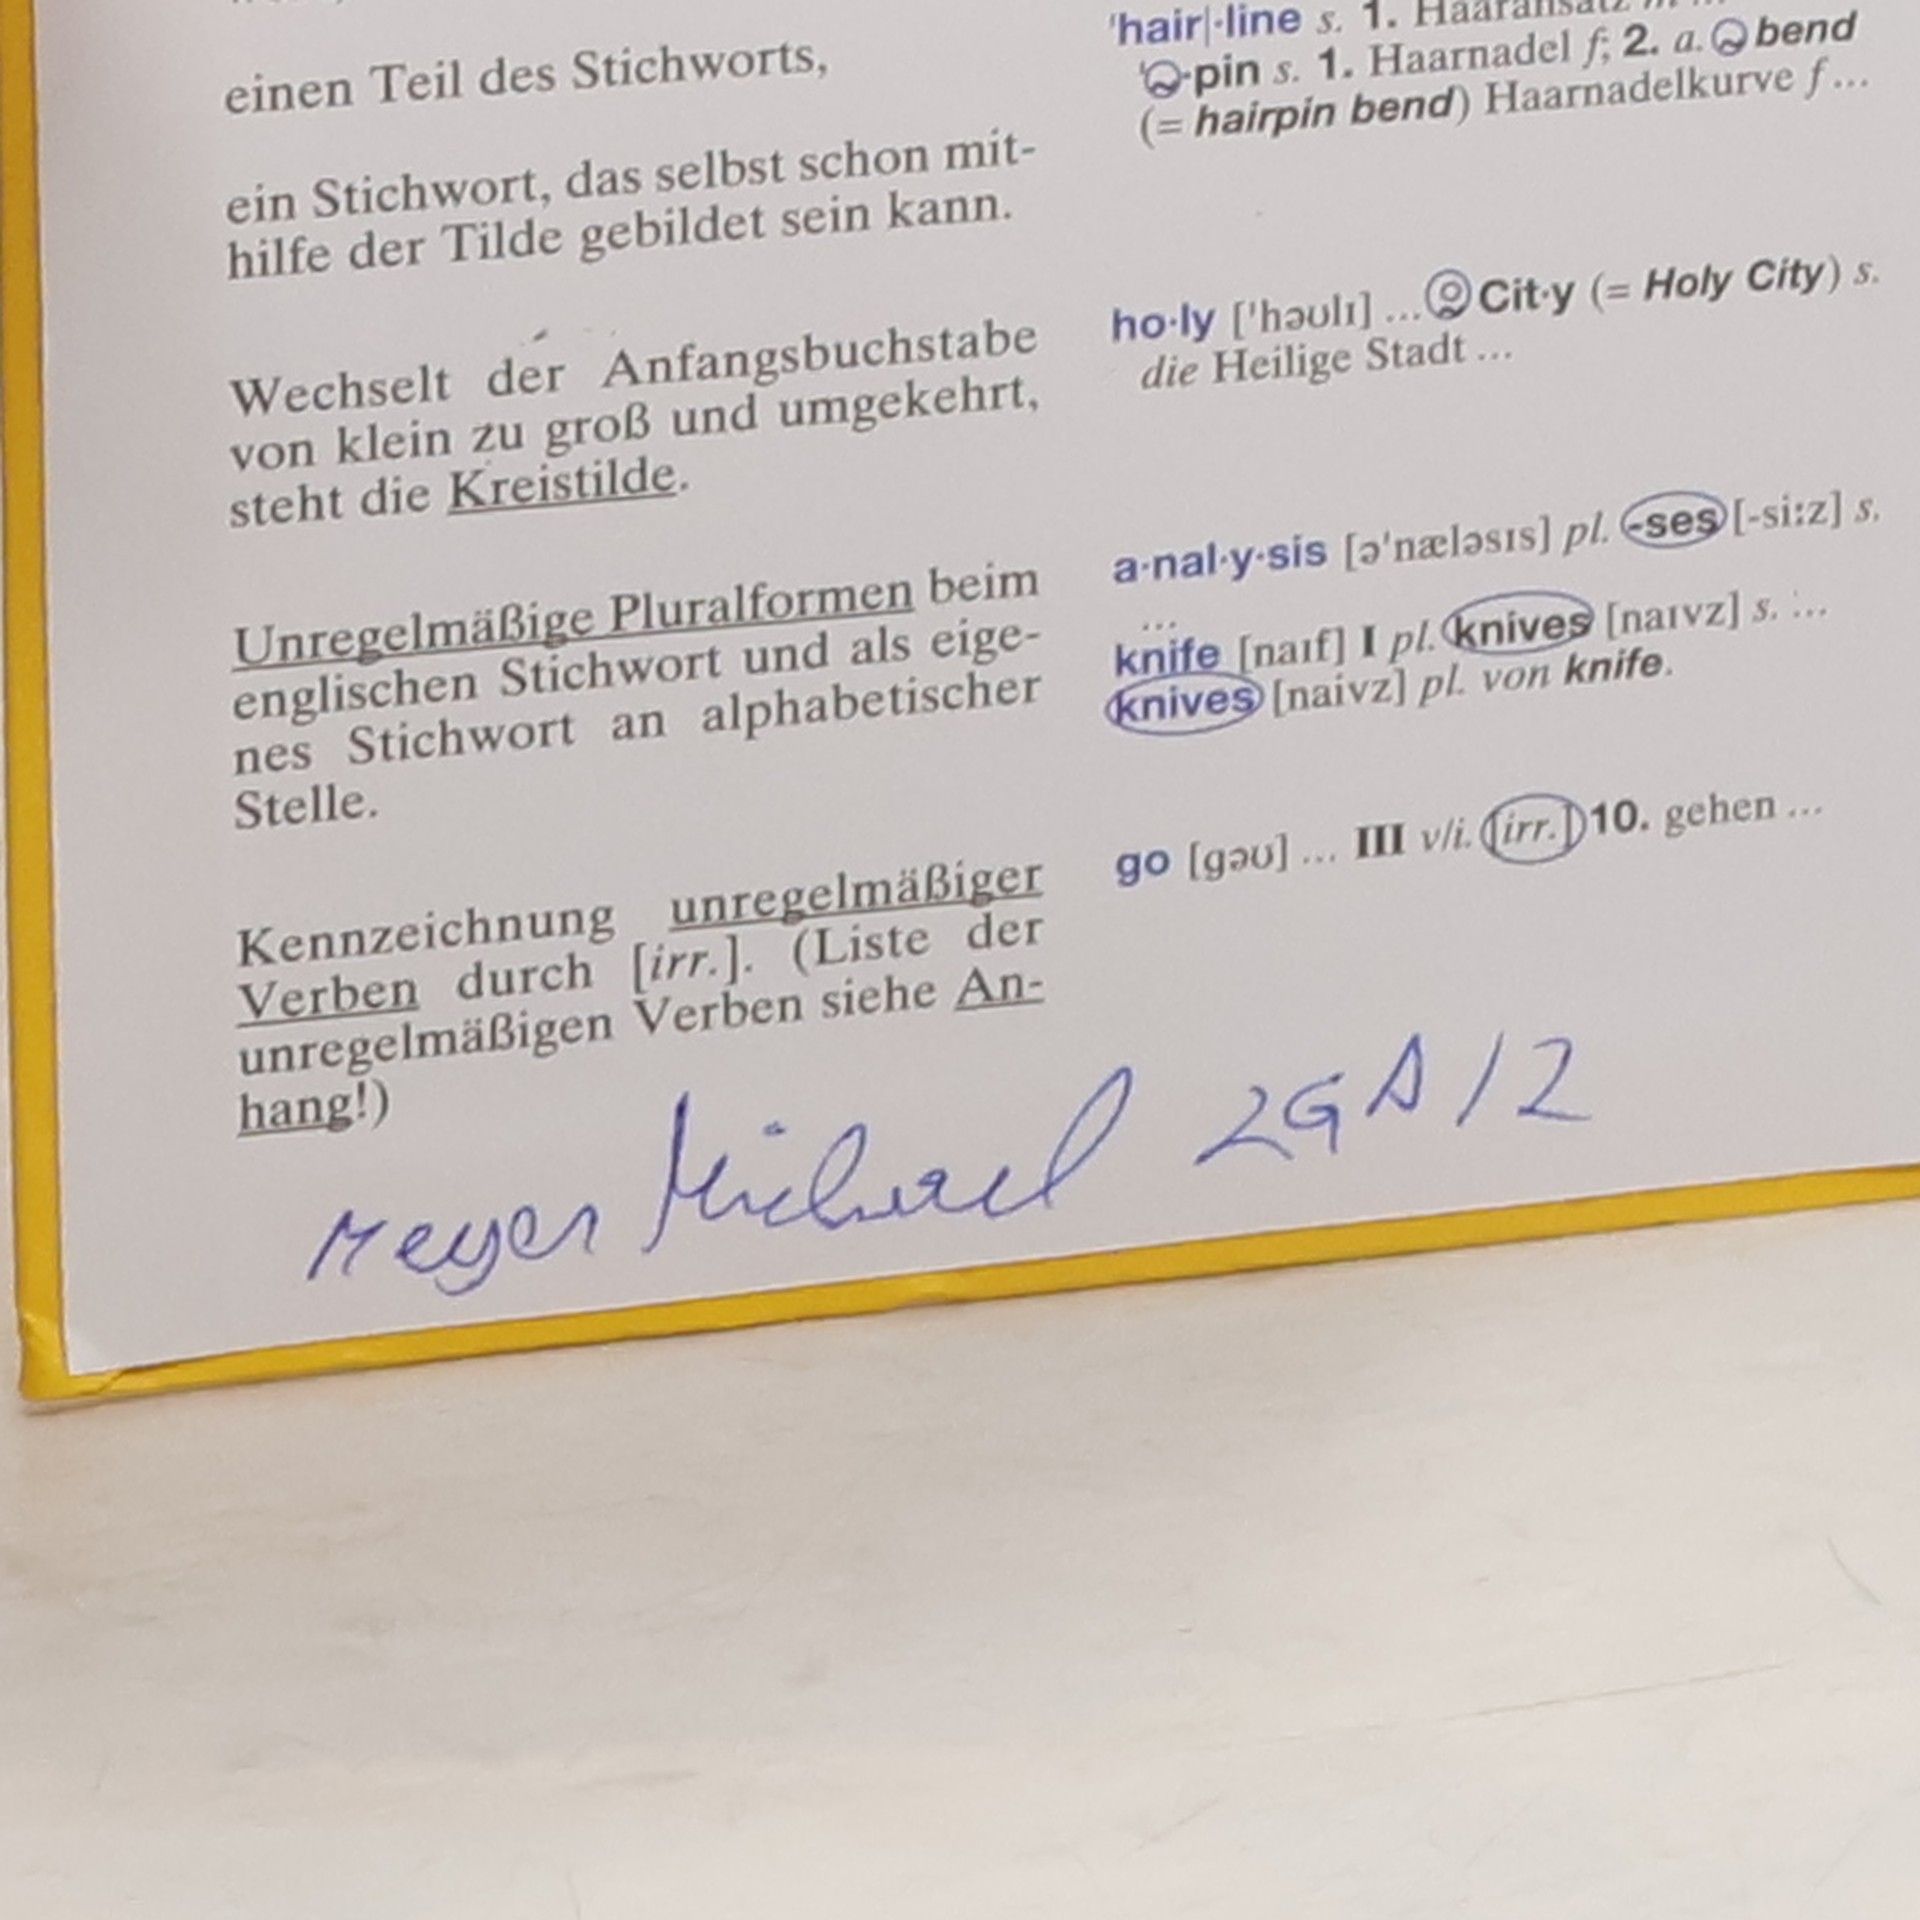 einen Teil des Stichworts,
ein Stichwort, das selbst schon mit-
hilfe der Tilde gebildet sein kann.
Wechselt der Anfangsbuchstabe
von klein zu groß und umgekehrt,
steht die Kreistilde.
Unregelmäßige Pluralformen beim
englischen Stichwort und als eige-
nes Stichwort an alphabetischer
Stelle.
Kennzeichnung unregelmäßiger
Verben durch [irr.]. (Liste der
unregelmäßigen Verben siehe An-
hang!)
'hair|·line s. 1. Haaransatz m ...
'~·pin s. 1. Haarnadel f; 2. a. ~ bend
(= hairpin bend) Haarnadelkurve f ...
ho·ly ['həʊlɪ] ... Cit·y (= Holy City) s.
die Heilige Stadt ...
a·nal·y·sis [ə'næləsɪs] pl. -ses [-siːz] s.
...
knife [naɪf] I pl. knives [naɪvz] s. ...
knives [naivz] pl. von knife.
go [gəʊ] ... III v/i. [irr.] 10. gehen ...
Meyer Michael 2GA/2